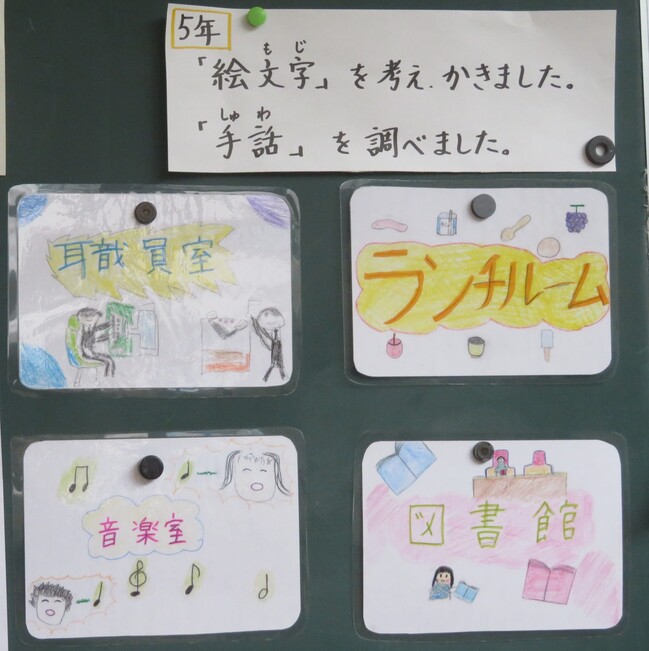 5年
「絵文字」を考え、かきました。
もじ
「手話」を調べました。
しゅわ
職員室
ランチルーム
音楽室
図書館